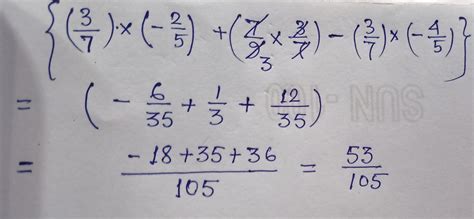 {(3/7)·×(-2/5) + (7/9₃ × 3/7) - (3/7)×(-4/5)}
= (- 6/35 + 1/3 + 12/35)
= (-18+35+36)/105 = 53/105